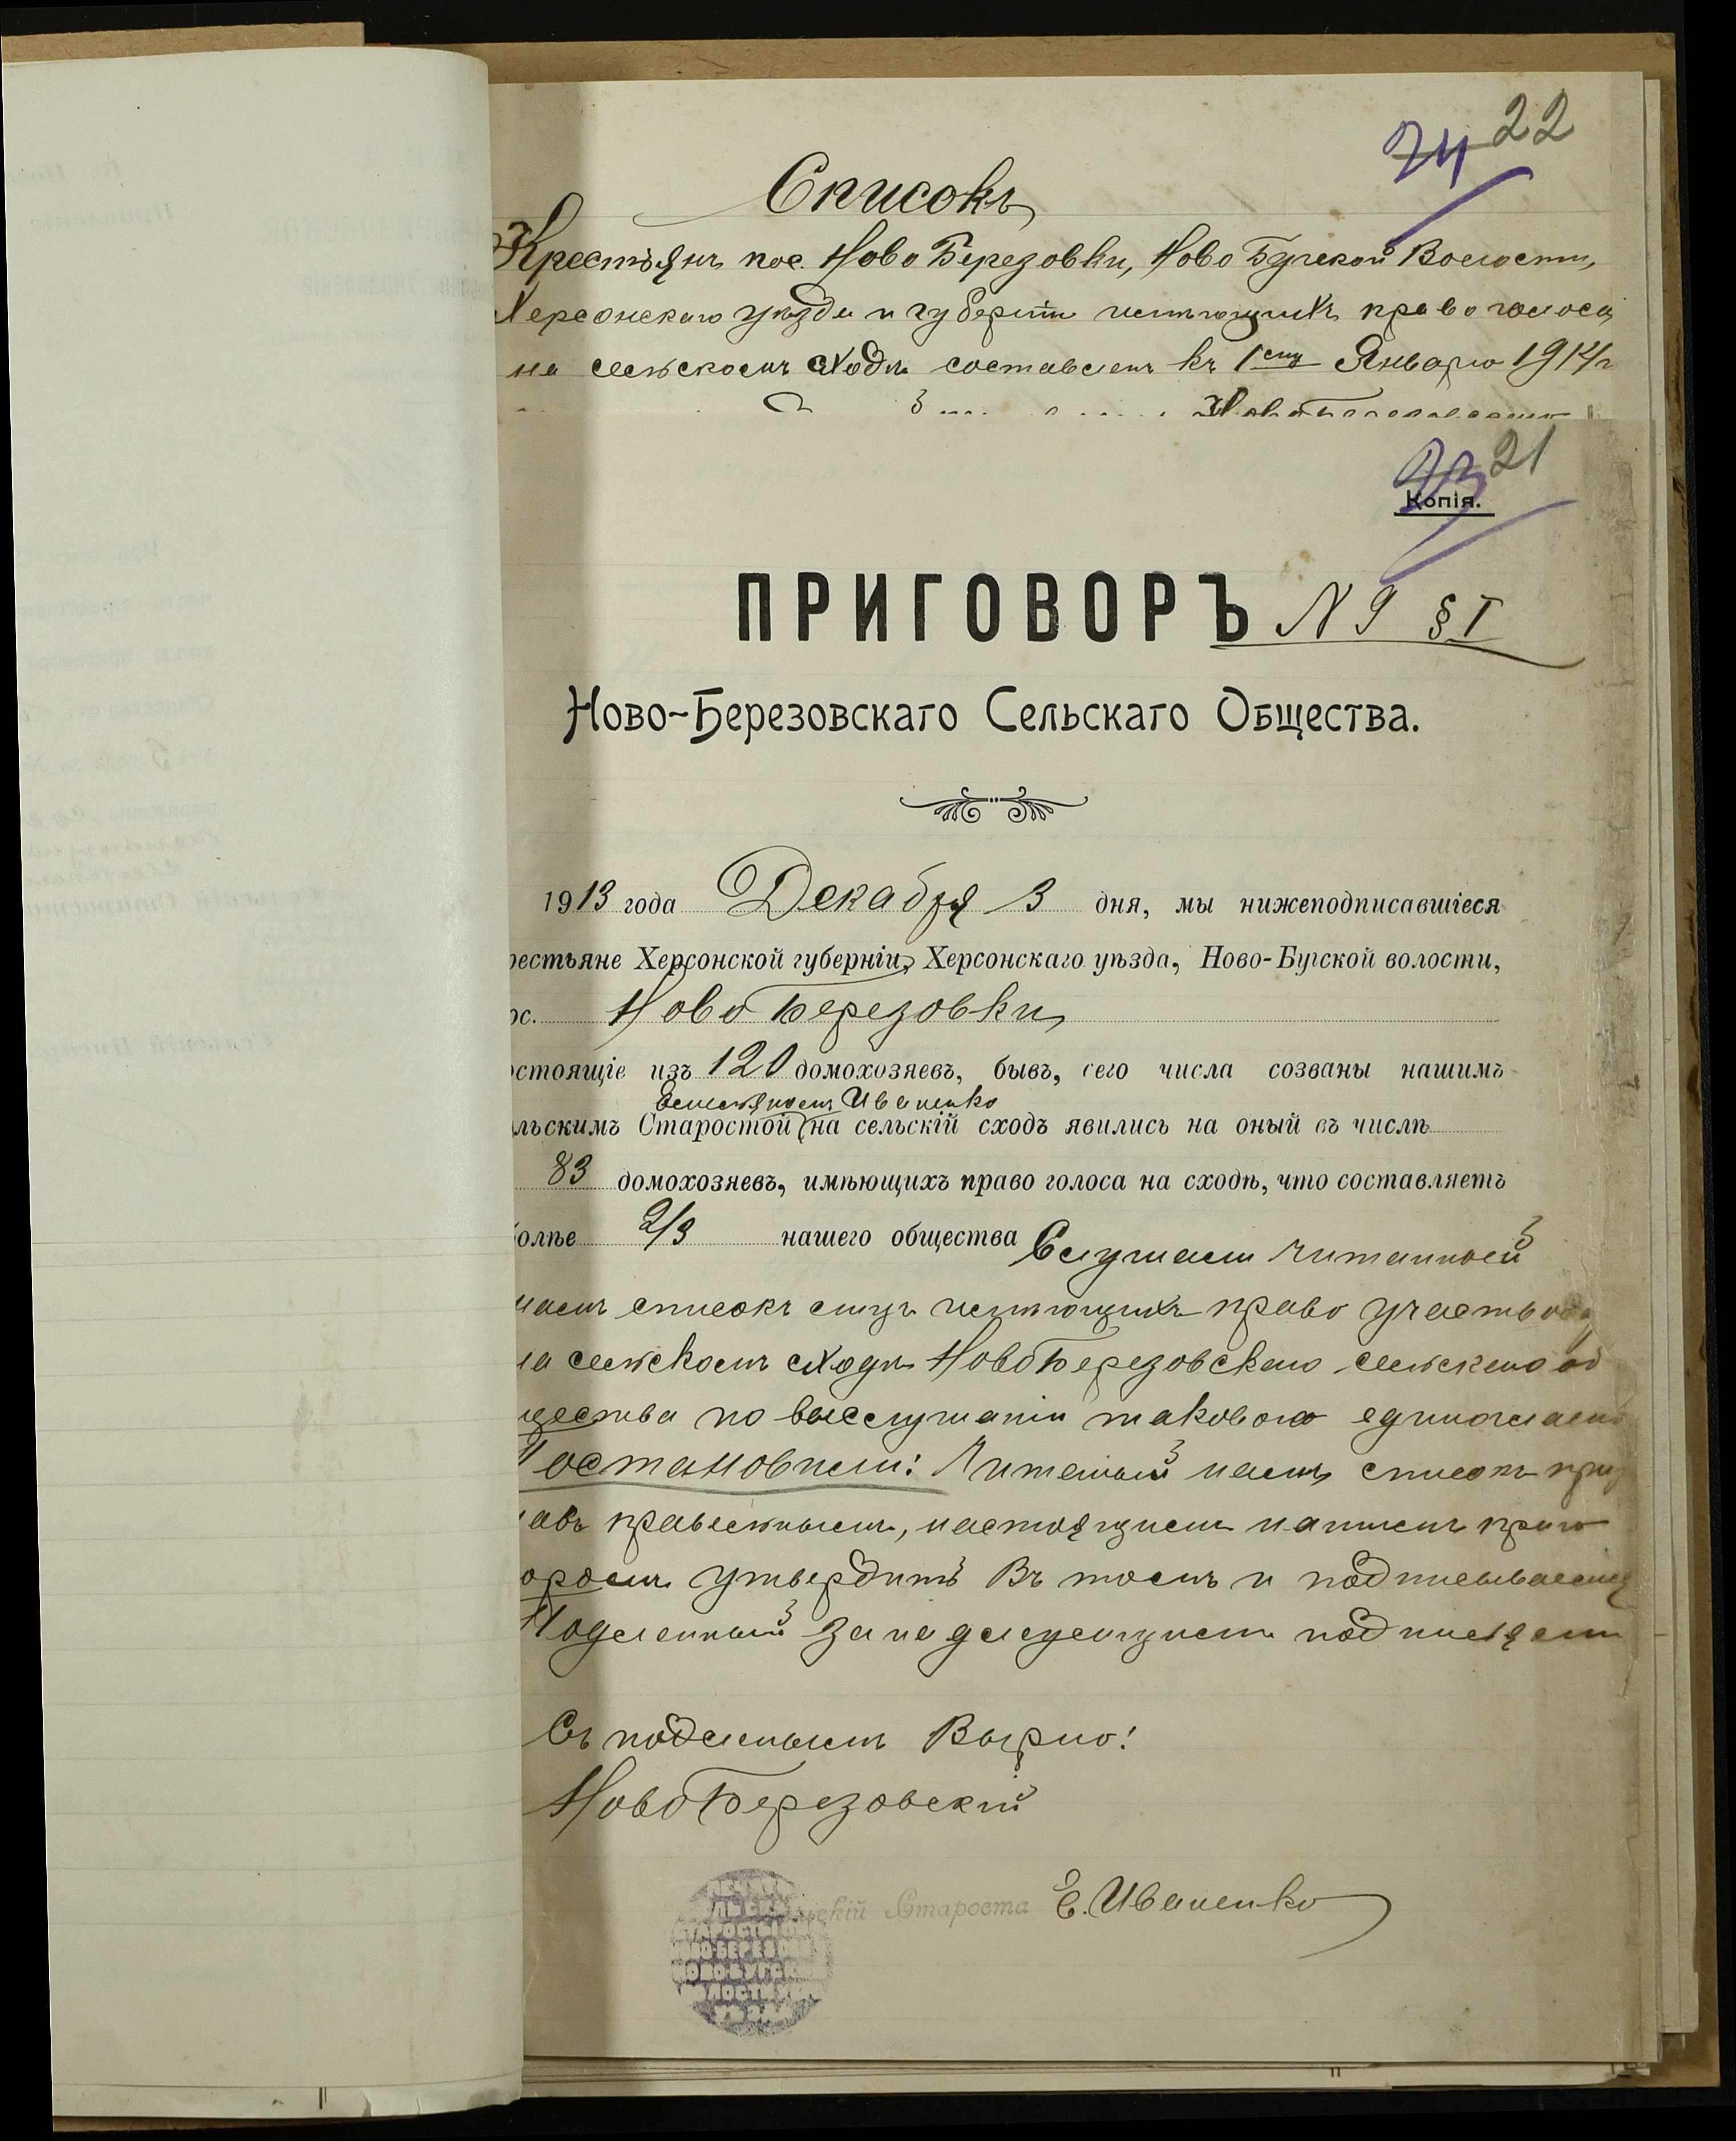 22
74
Списокъ
Крестьянъ пос. Ново Березовки, Ново Бугской Волости,
Херсонскаго уѣзда и губерніи имѣющихъ право голоса
на сельскомъ сходѣ составленъ къ 1му Января 1914 г
21
73
Копія.
ПРИГОВОРЪ N 9 § I
Ново-Березовскаго Сельскаго Общества.
1913 года Декабря 3 дня, мы нижеподписавшіеся
рестьяне Херсонской губерніи, Херсонскаго уѣзда, Ново-Бугской волости,
ос. Ново Березовки
остоящіе изъ 120 домохозяевъ, бывъ, сего числа созваны нашимъ
Емельяномъ Иваненко
льскимъ Старостой на сельскій сходъ явились на оный въ числѣ
83 домохозяевъ, имѣющихъ право голоса на сходѣ, что составляетъ
олѣе 2/3 нашего общества Слушали читанный
намъ списокъ лицъ имѣющихъ право участвова
на сельскомъ сходѣ Ново Березовскаго сельскаго об
щества по выслушаніи таковаго единогласно
Постановили: Читаный намъ списокъ приз
навъ правельнымъ, настоящимъ нашимъ приго
оромъ утвердить Въ томъ и подписываемся
Подленный за надлежащими подписями
Съ подленымъ Вѣрно!
Ново Березовскій
льскій Староста Е. Иваненко
СТАРОСТЫ
НОВО-БЕРЕЗОВ
НОВО-БУГСК
ВОЛОСТИ